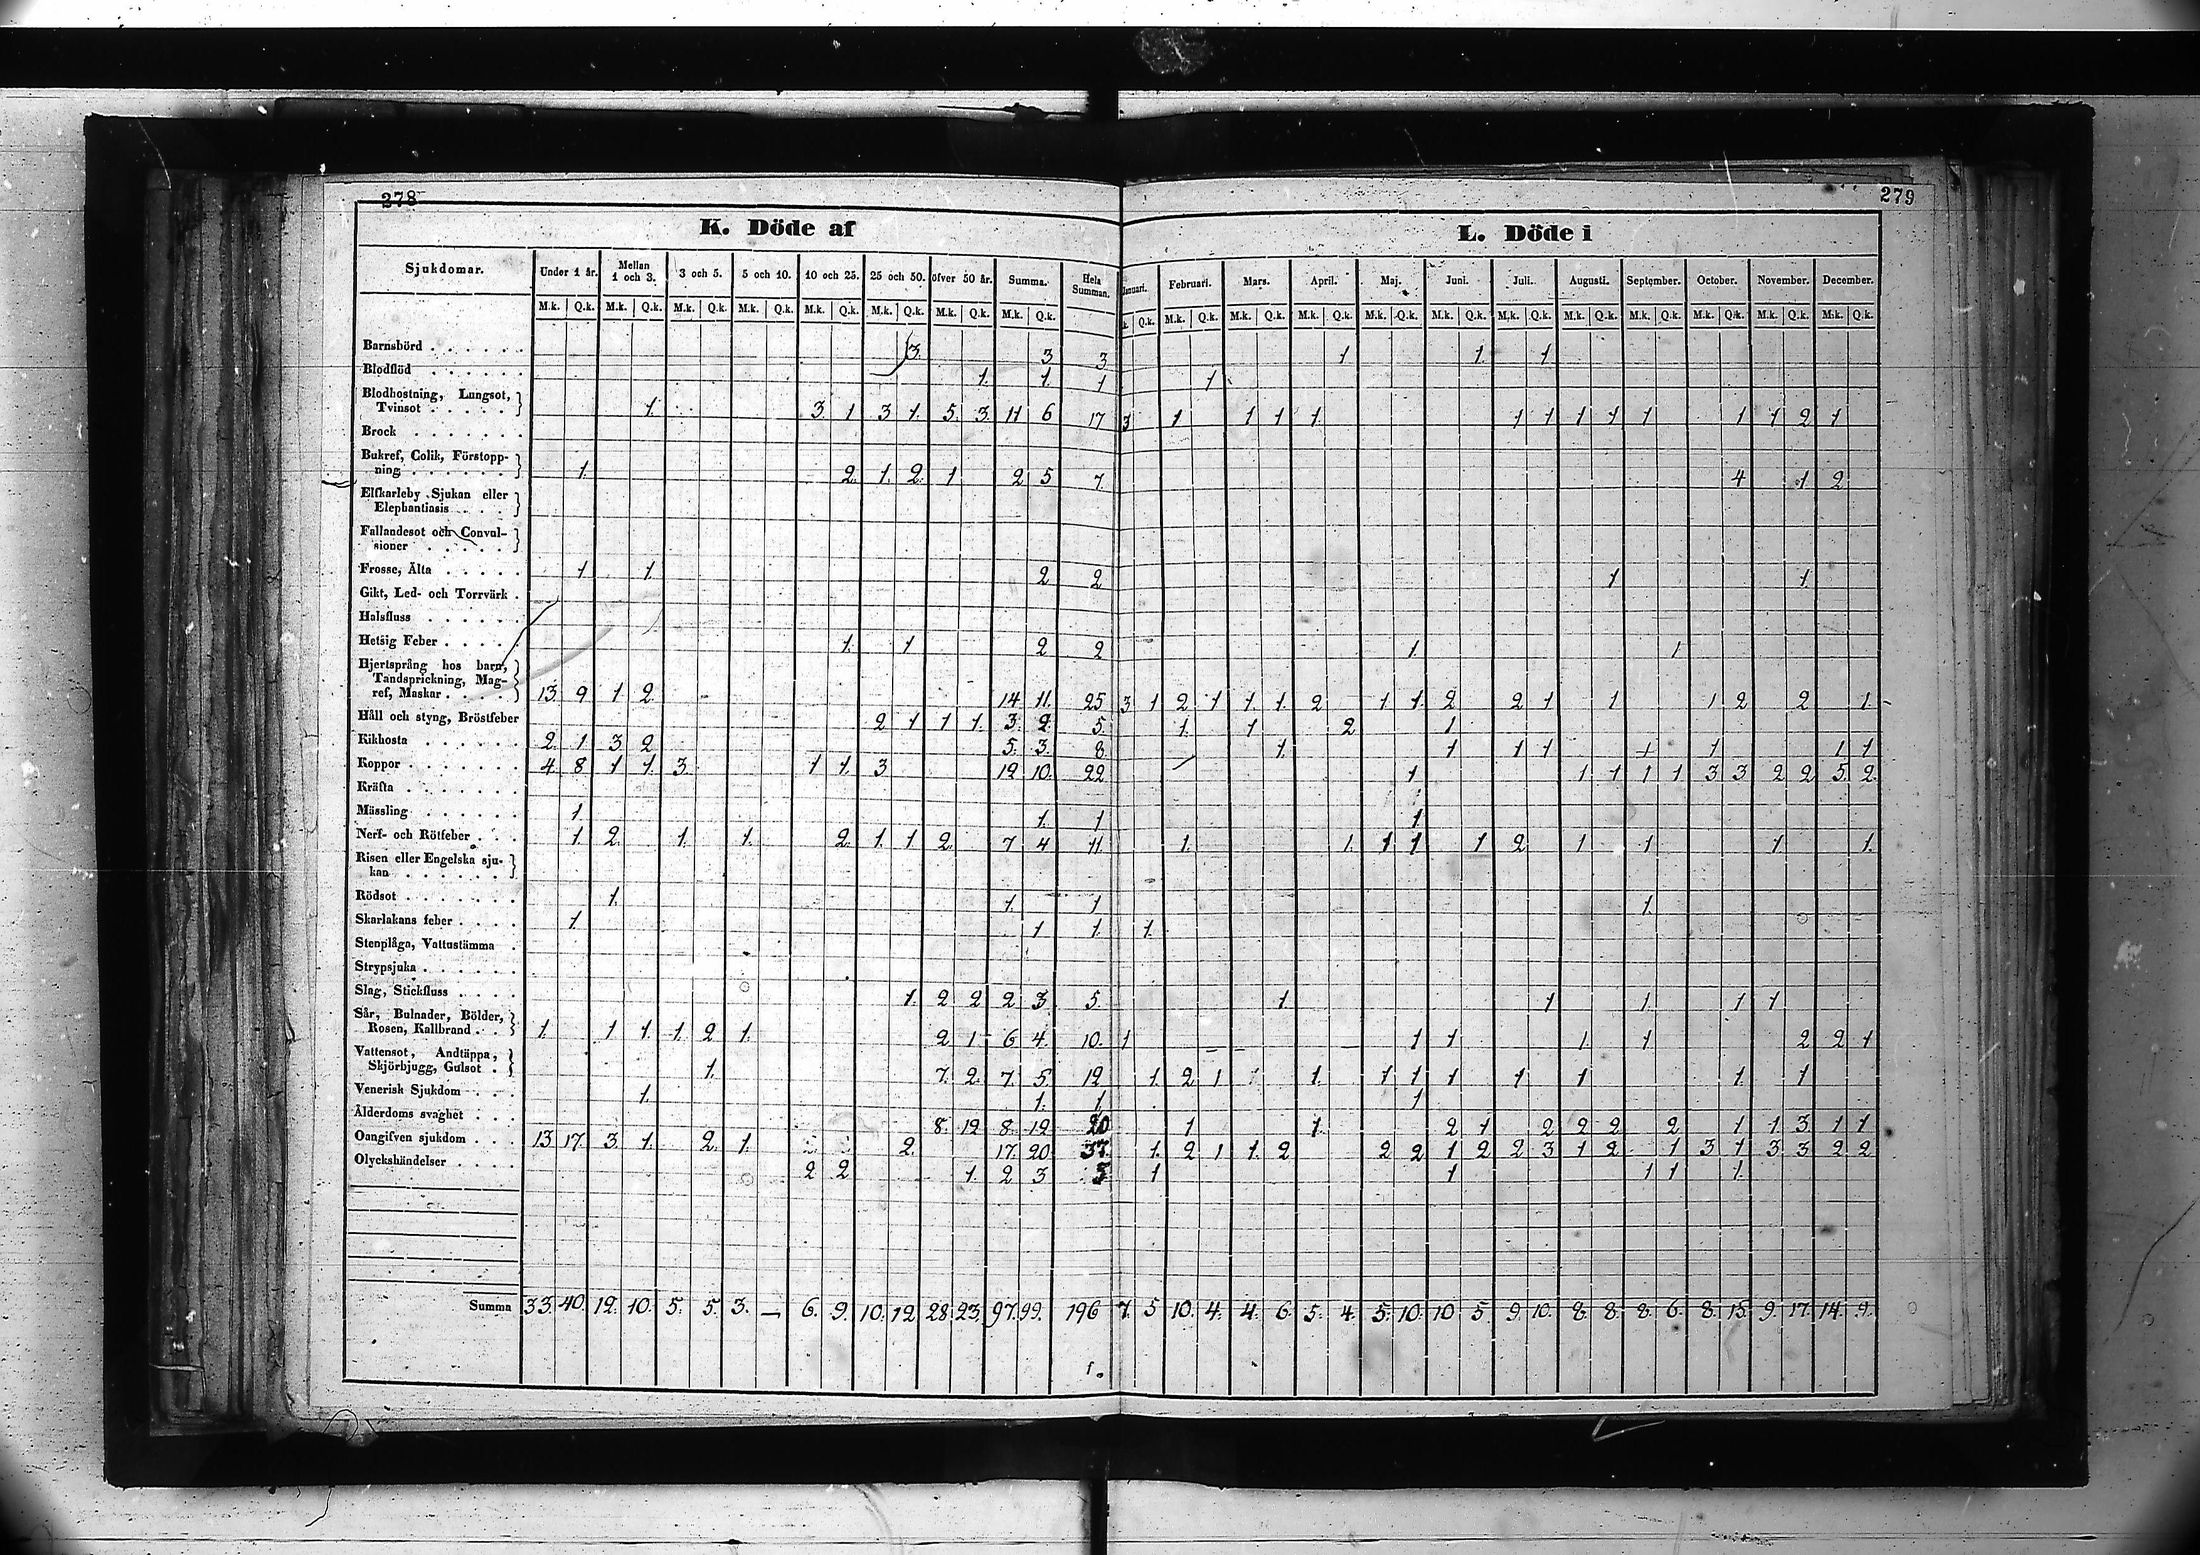 278
279
K. Döde af
L. Döde i
Sjukdomar. Under 1 år. Mellan 1 och 3. 3 och 5. 5 och 10. 10 och 25. 25 och 50. öfver 50 år. Summa. Hela Summan. Januari. Februari. Mars. April. Maj. Juni. Juli. Augusti. September. October. November. December.
M.k. Q.k. M.k. Q.k. M.k. Q.k. M.k. Q.k. M.k. Q.k. M.k. Q.k. M.k. Q.k. M.k. Q.k. k. Q.k. M.k. Q.k. M.k. Q.k. M.k. Q.k. M.k. Q.k. M.k. Q.k. M.k. Q.k. M.k. Q.k. M.k. Q.k. M.k. Q.k. M.k. Q.k. M.k. Q.k.
Barnsbörd . . . . . . 3. 3 3 1 1. 1
Blodflöd . . . . . . 1. 1. 1 1
Blodhostning, Lungsot,
Tvinsot . . . . . 1. 3. 1 3 1. 5. 3. 11 6 17 3 1 1 1 1. 1 1 1 1 1 1 1 2 1
Brock . . . . . . .
Bukref, Colik, Förstopp-
ning . . . . . . 1. 2. 1. 2. 1 2 5 7. 4 1 2
Elfkarleby Sjukan eller
Elephantiasis . . . .
Fallandesot och Convul-
sioner . . . . .
Frosse, Älta . . . . . 1 1. 2 2 1 1
Gikt, Led- och Torrvärk .
Halsfluss . . . . . .
Hetsig Feber . . . . . 1. 1 2 2 1. 1
Hjertsprång hos barn,
Tandsprickning, Mag-
ref, Maskar . . . . 13. 9 1 2. 14 11. 25 3 1 2 1 1 1. 2 1 1. 2 2 1 1 1 2 2 1.
Håll och styng, Bröstfeber 2 1 1 1. 3. 2. 5. 1. 1 2 1
Kikhosta . . . . . . 2. 1 3 2 5. 3. 8. 1. 1 1 1 1 1 1 1
Koppor . . . . . . . 4. 8 1 1. 3. 1 1. 3 12 10. 22 1 1 1 1 1 3 3 2 2 5. 2.
Kräfta . . . . . . .
Mässling . . . . . . 1 1. 1 1
Nerf- och Rötfeber . . . 1. 2. 1. 1. 2. 1. 1 2. 7 4 11. 1. 1. 1 1 1 2 1 1 1 1.
Risen eller Engelska sju-
kan . . . . . . .
Rödsot . . . . . . . 1. 1. 1 1.
Skarlakans feber . . . . 1 1 1. 1.
Stenplåga, Vattustämma .
Strypsjuka . . . . . .
Slag, Stickfluss . . . . 1. 2 2 2 3 5. 1. 1 1. 1 1
Sår, Bulnader, Bölder,
Rosen, Kallbrand . . 1. 1 1. 1. 2 1. 2 1 6 4. 10. 1 1 1 1. 1 2 2 1
Vattensot, Andtäppa,
Skjörbjugg, Gulsot . 1. 7. 2. 7. 5 12 1. 2 1 1. 1 1 1 1 1 1. 1
Venerisk Sjukdom . . . 1. 1. 1 1
Ålderdoms svaghet . . . 8. 12 8. 12 20 1 1. 2 1 2 2 2 2 1 1 3. 1 1
Oangifven sjukdom . . . 13 17. 3. 1. 2. 1. 2. 17. 20. 37. 1. 2 1 1. 2 2 2 1 2 2 3 1 2 1 3 1 3 3 2 2
Olyckshändelser . . . . 2 2 1. 2 3 5 1 1 1 1 1.
Summa 33. 40. 12. 10. 5. 5. 3. — 6. 9. 10. 12 28. 23. 97. 99. 196 7. 5 10. 4. 4. 6. 5. 4. 5. 10. 10 5. 9. 10. 8. 8. 8. 6. 8. 15. 9. 17. 14 9.